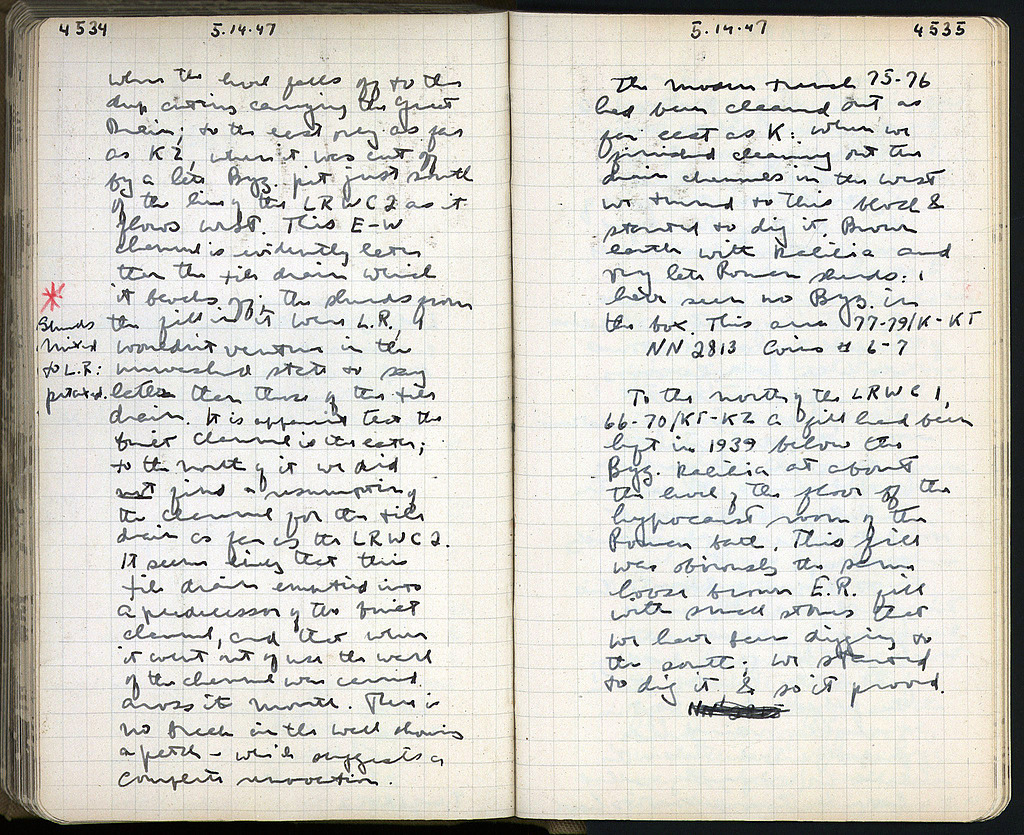 4534 5.14.47
where the level falls off to the
deep cutting carrying the Great
Drain; to the east only as far
as KZ, where it was cut off
by a late Byz. pit just south
of the line of the LRWC2 as it
flows west. This E-W
channel is evidently later
than the tile drain which
it blocks off; the sherds from
the fill in it were L.R., I
wouldn't venture in the
unwashed state to say
later than those of the tile
drain. It is apparent that the
channel is later;
to the north of it we did
not find a resumption of
the channel for the tile
drain as far as the LRWC2.
It seems likely that this
tile drain emptied into
a predecessor of the
channel, and that when
it went out of use the wall
of the channel was carried
across its mouth. There is
no break in the wall showing
a patch - which suggests a
complete renovation.
*
Sherds
mixed
to L.R:
5.14.47 4535
The modern trench 75-76
had been cleaned out as
far east as K: when we
finished cleaning out the
drain channels in the west
we turned to this block &
started to dig it. Brown
earth with kalilia and
very late Roman sherds: I
have seen no Byz. in
the box. This area 77-79/K-KΣT
NN 2813 Coins # 6-7
To the north of the LRWC1,
66-70/KΣT-KZ a fill had been
left in 1939 below the
Byz. kalilia at about
the level of the floor of the
hypocaust room of the
Roman bath. This fill
was obviously the same
loose brown E.R. fill
with small stones that
we have been digging to
the south; we started
to dig it, & so it proved.